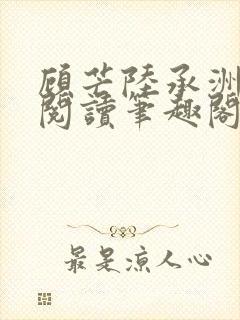 顧芒陸承洲
閱讀筆趣閣
最是涼人心